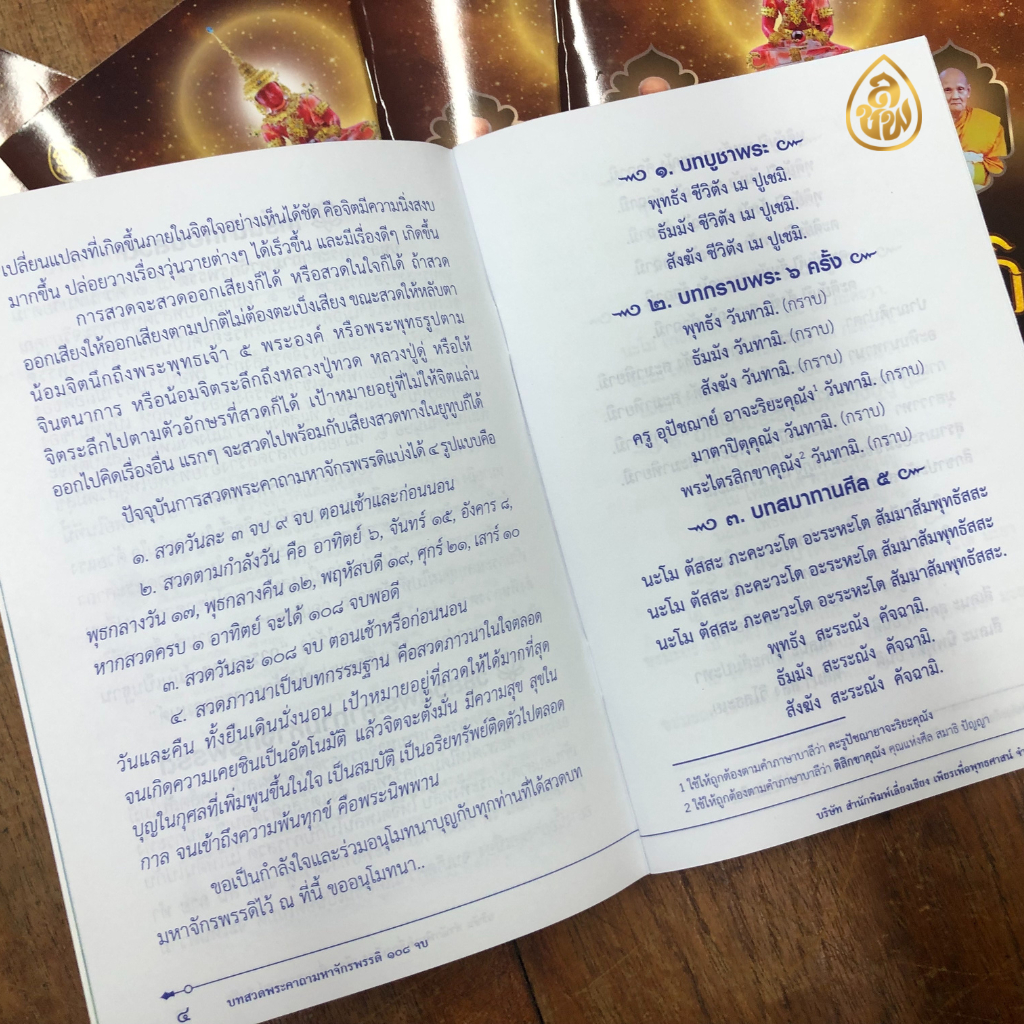 เปลี่ยนแปลงที่เกิดขึ้นภายในจิตใจอย่างเห็นได้ชัด คือจิตมีความนิ่งสงบ
มากขึ้น ปล่อยวางเรื่องวุ่นวายต่างๆ ได้เร็วขึ้น และมีเรื่องดีๆ เกิดขึ้น
การสวดจะสวดออกเสียงก็ได้ หรือสวดในใจก็ได้ ถ้าสวด
ออกเสียงให้ออกเสียงตามปกติไม่ต้องตะเบ็งเสียง ขณะสวดให้หลับตา
น้อมจิตนึกถึงพระพุทธเจ้า ๕ พระองค์ หรือพระพุทธรูปตาม
จินตนาการ หรือน้อมจิตระลึกถึงหลวงปู่ทวด หลวงปู่ดู่ หรือให้
จิตระลึกไปตามตัวอักษรที่สวดก็ได้ เป้าหมายอยู่ที่ไม่ให้จิตแล่น
ออกไปคิดเรื่องอื่น แรกๆ จะสวดไปพร้อมกับเสียงสวดทางในยูทูบก็ได้
ปัจจุบันการสวดพระคาถามหาจักรพรรดิแบ่งได้ ๔ รูปแบบคือ
๑. สวดวันละ ๓ จบ ๙ จบ ตอนเช้าและก่อนนอน
๒. สวดตามกำลังวัน คือ อาทิตย์ ๖, จันทร์ ๑๕, อังคาร ๘,
พุธกลางวัน ๑๗, พุธกลางคืน ๑๒, พฤหัสบดี ๑๙, ศุกร์ ๒๑, เสาร์ ๑๐
หากสวดครบ ๑ อาทิตย์ จะได้ ๑๐๘ จบพอดี
๓. สวดวันละ ๑๐๘ จบ ตอนเช้าหรือก่อนนอน
๔. สวดภาวนาเป็นบทกรรมฐาน คือสวดภาวนาในใจตลอด
วันและคืน ทั้งยืนเดินนั่งนอน เป้าหมายอยู่ที่สวดให้ได้มากที่สุด
จนเกิดความเคยชินเป็นอัตโนมัติ แล้วจิตจะตั้งมั่น มีความสุข สุขใน
บุญในกุศลที่เพิ่มพูนขึ้นในใจ เป็นสมบัติ เป็นอริยทรัพย์ติดตัวไปตลอด
กาล จนเข้าถึงความพ้นทุกข์ คือพระนิพพาน
ขอเป็นกำลังใจและร่วมอนุโมทนาบุญกับทุกท่านที่ได้สวดบท
มหาจักรพรรดิไว้ ณ ที่นี้ ขออนุโมทนา..
บทสวดพระคาถามหาจักรพรรดิ ๑๐๘ จบ
๔
๑. บทบูชาพระ
พุทธัง ชีวิตัง เม ปูเชมิ.
ธัมมัง ชีวิตัง เม ปูเชมิ.
สังฆัง ชีวิตัง เม ปูเชมิ.
๒. บทกราบพระ ๖ ครั้ง
พุทธัง วันทามิ. (กราบ)
ธัมมัง วันทามิ. (กราบ)
สังฆัง วันทามิ. (กราบ)
ครู อุปัชฌาย์ อาจะริยะคุณัง¹ วันทามิ. (กราบ)
มาตาปิตุคุณัง วันทามิ. (กราบ)
พระไตรสิกขาคุณัง² วันทามิ. (กราบ)
๓. บทสมาทานศีล ๕
นะโม ตัสสะ ภะคะวะโต อะระหะโต สัมมาสัมพุทธัสสะ
นะโม ตัสสะ ภะคะวะโต อะระหะโต สัมมาสัมพุทธัสสะ
นะโม ตัสสะ ภะคะวะโต อะระหะโต สัมมาสัมพุทธัสสะ.
พุทธัง สะระณัง คัจฉามิ.
ธัมมัง สะระณัง คัจฉามิ.
สังฆัง สะระณัง คัจฉามิ.
1 ใช้ให้ถูกต้องตามคำภาษาบาลีว่า คะรูปัชฌายาจะริยะคุณัง
2 ใช้ให้ถูกต้องตามคำภาษาบาลีว่า ติสิกขาคุณัง คุณแห่งศีล สมาธิ ปัญญา
บริษัท สำนักพิมพ์เลี่ยงเชียง เพียรเพื่อพุทธศาสน์